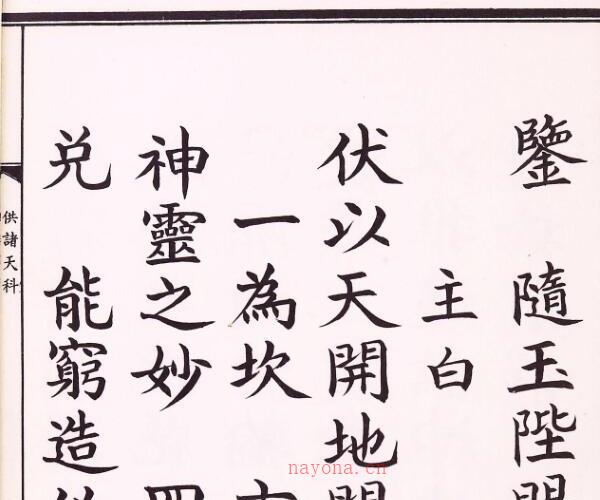 鑒 隨玉陛
主白
伏以天開地
一為坎
神靈之妙
兌 能窮造
供諸天科
nayona.cn